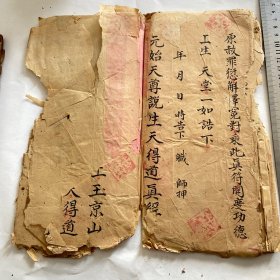 原赦罪愆解釋冤對永此真符開度功德
上生 天堂一如誥下
年 月 日 時告下 職 師押
元始天尊說生天得道真經
上玉京山
人得道